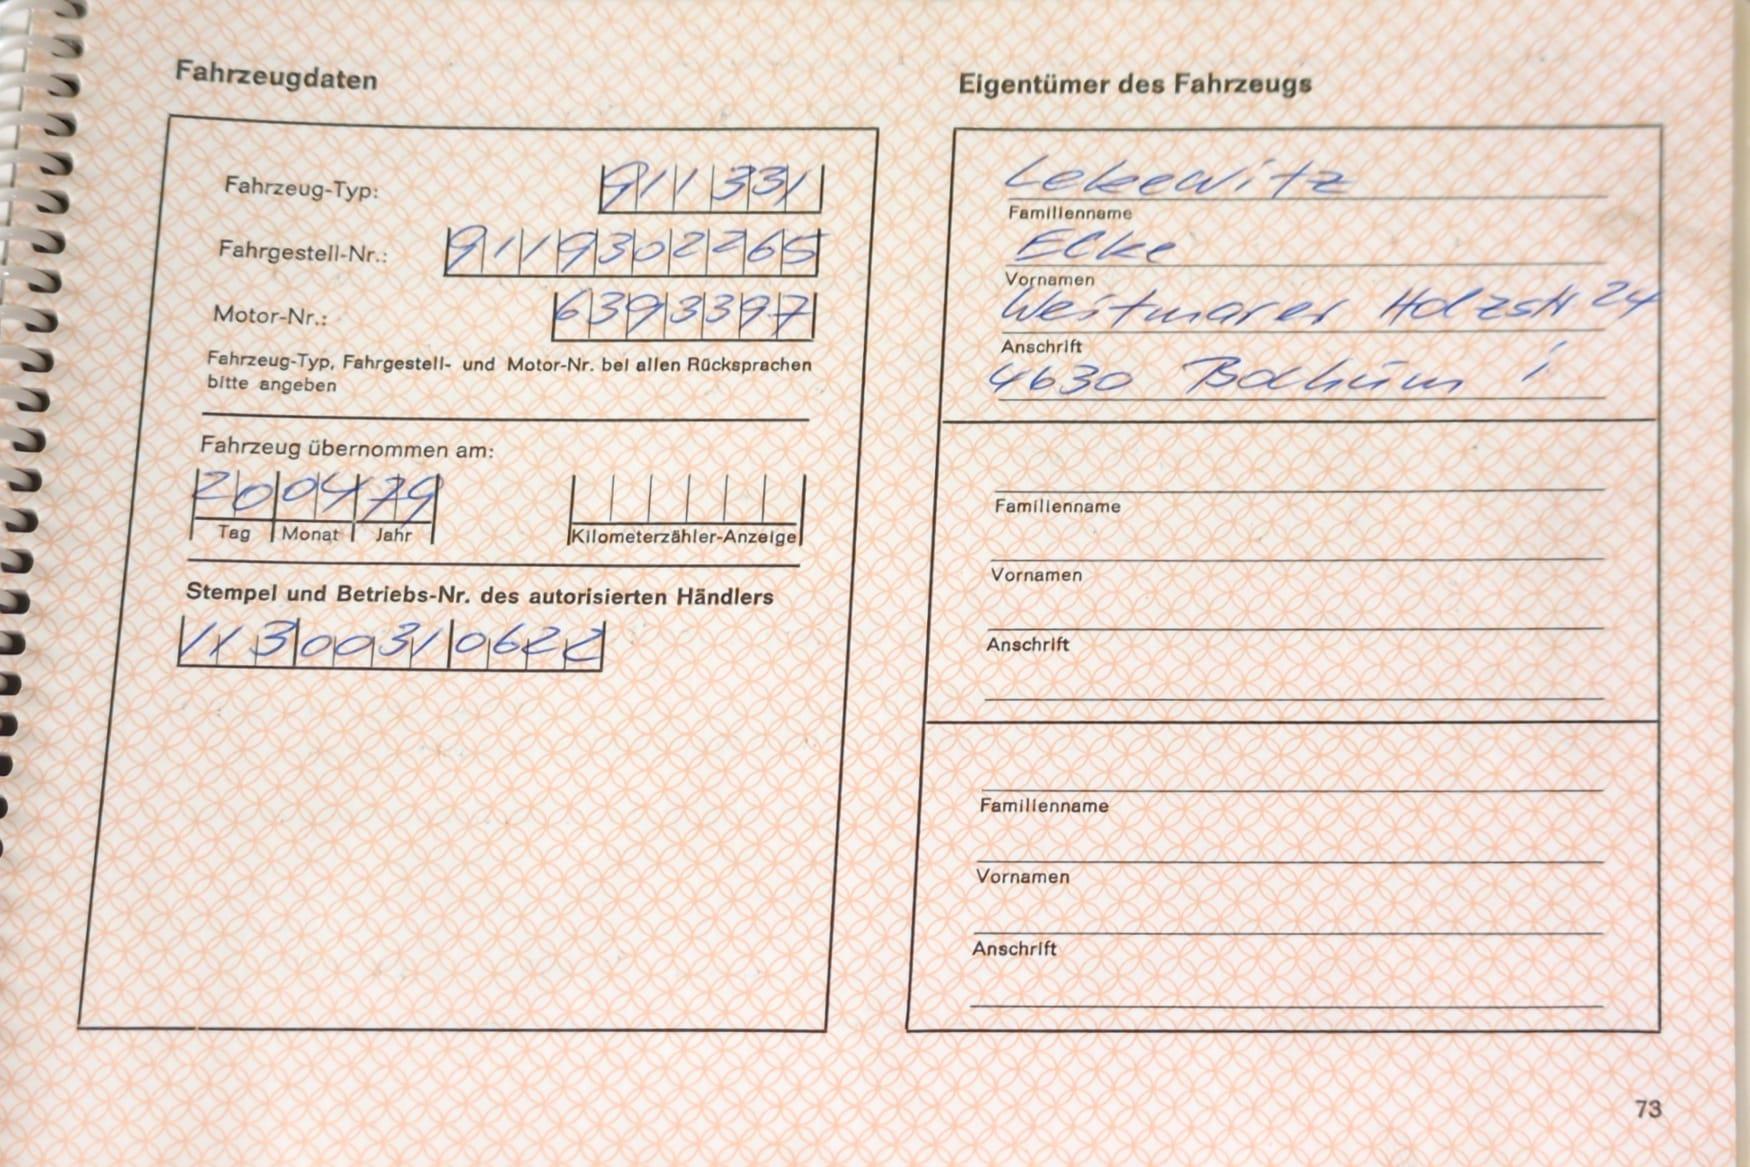 Fahrzeugdaten
Fahrzeug-Typ: 911331
Fahrgestell-Nr.: 9119302265
Motor-Nr.: 6393397
Fahrzeug-Typ, Fahrgestell- und Motor-Nr. bei allen Rücksprachen
bitte angeben
Fahrzeug übernommen am:
200479
Tag Monat Jahr Kilometerzähler-Anzeige
Stempel und Betriebs-Nr. des autorisierten Händlers
11300310622
Eigentümer des Fahrzeugs
Lekewitz
Familienname
Ecke
Vornamen
Weitmarer Holzstr 24
Anschrift
4630 Bochum 1
Familienname
Vornamen
Anschrift
Familienname
Vornamen
Anschrift
73